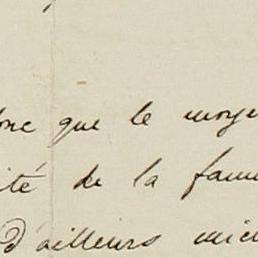 donc que le moye
ité de la fam
d'ailleurs mie